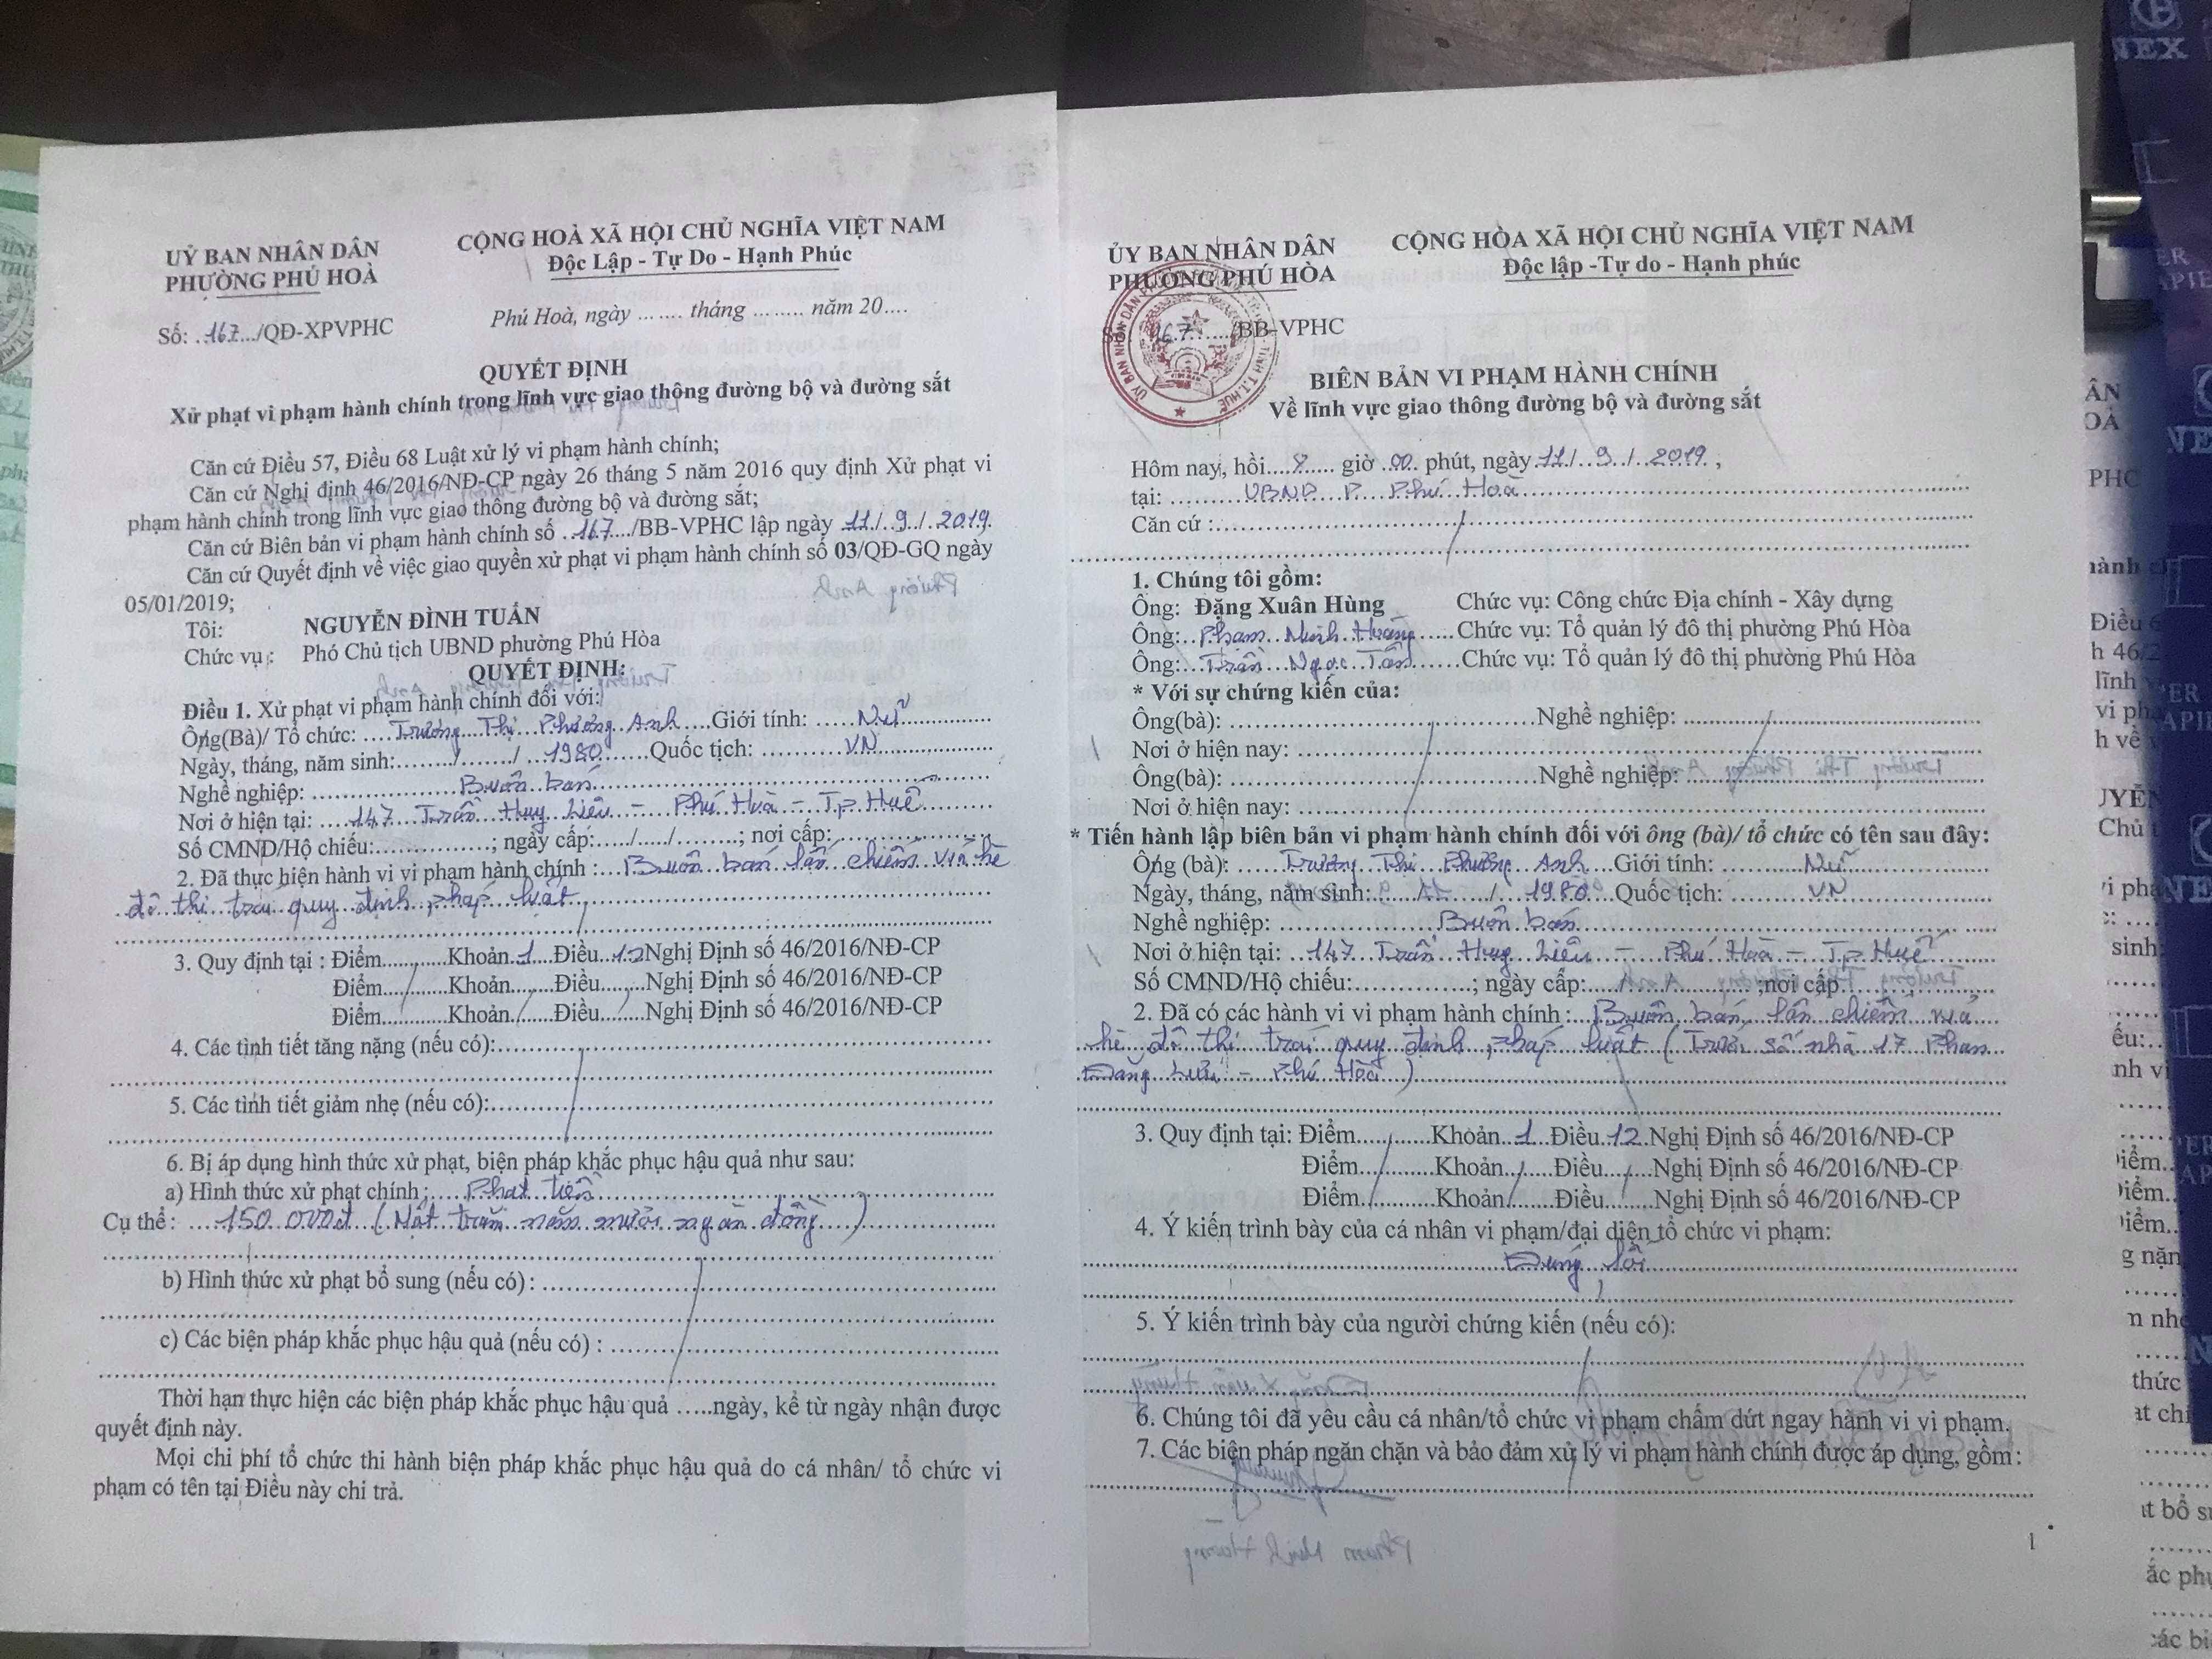 UỶ BAN NHÂN DÂN
PHƯỜNG PHÚ HOÀ
CỘNG HOÀ XÃ HỘI CHỦ NGHĨA VIỆT NAM
Độc Lập - Tự Do - Hạnh Phúc
Số: ..167.../QĐ-XPVPHC
Phú Hoà, ngày ....... tháng ........ năm 20....
QUYẾT ĐỊNH
Xử phạt vi phạm hành chính trong lĩnh vực giao thông đường bộ và đường sắt
Căn cứ Điều 57, Điều 68 Luật xử lý vi phạm hành chính;
Căn cứ Nghị định 46/2016/NĐ-CP ngày 26 tháng 5 năm 2016 quy định Xử phạt vi
phạm hành chính trong lĩnh vực giao thông đường bộ và đường sắt;
Căn cứ Biên bản vi phạm hành chính số ..167..../BB-VPHC lập ngày 11./..9../..2019.
Căn cứ Quyết định về việc giao quyền xử phạt vi phạm hành chính số 03/QĐ-GQ ngày
05/01/2019;
Tôi: NGUYỄN ĐÌNH TUẤN
Chức vụ: Phó Chủ tịch UBND phường Phú Hòa
QUYẾT ĐỊNH:
Điều 1. Xử phạt vi phạm hành chính đối với:
Ông(Bà)/ Tổ chức: ....Trương Thị Phương Anh....Giới tính: .....Nữ.........
Ngày, tháng, năm sinh:......../......../...1980.......Quốc tịch: ..........VN..........
Nghề nghiệp: ..........Buôn bán..........
Nơi ở hiện tại: ....147 Trần Huy Liệu - Phú Hoà - Tp Huế..........
Số CMND/Hộ chiếu:..............; ngày cấp:...../...../..........; nơi cấp:..............
2. Đã thực hiện hành vi vi phạm hành chính :...Buôn bán lấn chiếm vỉa hè
đô thị trái quy định pháp luật..........
3. Quy định tại : Điểm...........Khoản.1....Điều...12Nghị Định số 46/2016/NĐ-CP
Điểm...........Khoản........Điều........Nghị Định số 46/2016/NĐ-CP
Điểm...........Khoản........Điều........Nghị Định số 46/2016/NĐ-CP
4. Các tình tiết tăng nặng (nếu có):..........
5. Các tình tiết giảm nhẹ (nếu có):..........
6. Bị áp dụng hình thức xử phạt, biện pháp khắc phục hậu quả như sau:
a) Hình thức xử phạt chính :.....Phạt tiền..........
Cụ thể : ....150.000đ (Một trăm năm mươi ngàn đồng)..........
b) Hình thức xử phạt bổ sung (nếu có) : ..........
c) Các biện pháp khắc phục hậu quả (nếu có) : ..........
Thời hạn thực hiện các biện pháp khắc phục hậu quả .....ngày, kể từ ngày nhận được
quyết định này.
Mọi chi phí tổ chức thi hành biện pháp khắc phục hậu quả do cá nhân/ tổ chức vi
phạm có tên tại Điều này chi trả.
ỦY BAN NHÂN DÂN
PHƯỜNG PHÚ HÒA
CỘNG HÒA XÃ HỘI CHỦ NGHĨA VIỆT NAM
Độc lập -Tự do - Hạnh phúc
Số: 167....../BB-VPHC
BIÊN BẢN VI PHẠM HÀNH CHÍNH
Về lĩnh vực giao thông đường bộ và đường sắt
Hôm nay, hồi....8..... giờ .00. phút, ngày.11./..9../..2019.,
tại: ..........UBND P. Phú Hoà..........
Căn cứ :..........
1. Chúng tôi gồm:
Ông: Đặng Xuân Hùng Chức vụ: Công chức Địa chính - Xây dựng
Ông:..Phạm Minh Hoàng.....Chức vụ: Tổ quản lý đô thị phường Phú Hòa
Ông:..Trần Ngọc Tấn......Chức vụ: Tổ quản lý đô thị phường Phú Hòa
* Với sự chứng kiến của:
Ông(bà): ..........Nghề nghiệp: ..........
Nơi ở hiện nay: ..........
Ông(bà): ..........Nghề nghiệp: ..........
Nơi ở hiện nay: ..........
* Tiến hành lập biên bản vi phạm hành chính đối với ông (bà)/ tổ chức có tên sau đây:
Ông (bà): ......Trương Thị Phương Anh..Giới tính: ..........Nữ..........
Ngày, tháng, năm sinh:....../...1980....Quốc tịch: ..........VN..........
Nghề nghiệp: ..........Buôn bán..........
Nơi ở hiện tại: ..147 Trần Huy Liệu - Phú Hoà - Tp Huế..........
Số CMND/Hộ chiếu:..............; ngày cấp:..............;nơi cấp..............
2. Đã có các hành vi vi phạm hành chính :...Buôn bán, lấn chiếm vỉa
hè đô thị trái quy định pháp luật (Trước số nhà 17 Phan
Đăng Lưu - Phú Hòa)..........
3. Quy định tại: Điểm...........Khoản..1..Điều.12.Nghị Định số 46/2016/NĐ-CP
Điểm...........Khoản........Điều........Nghị Định số 46/2016/NĐ-CP
Điểm...........Khoản........Điều........Nghị Định số 46/2016/NĐ-CP
4. Ý kiến trình bày của cá nhân vi phạm/đại diện tổ chức vi phạm:
Đúng lỗi
5. Ý kiến trình bày của người chứng kiến (nếu có):
6. Chúng tôi đã yêu cầu cá nhân/tổ chức vi phạm chấm dứt ngay hành vi vi phạm.
7. Các biện pháp ngăn chặn và bảo đảm xử lý vi phạm hành chính được áp dụng, gồm:
1
NEX